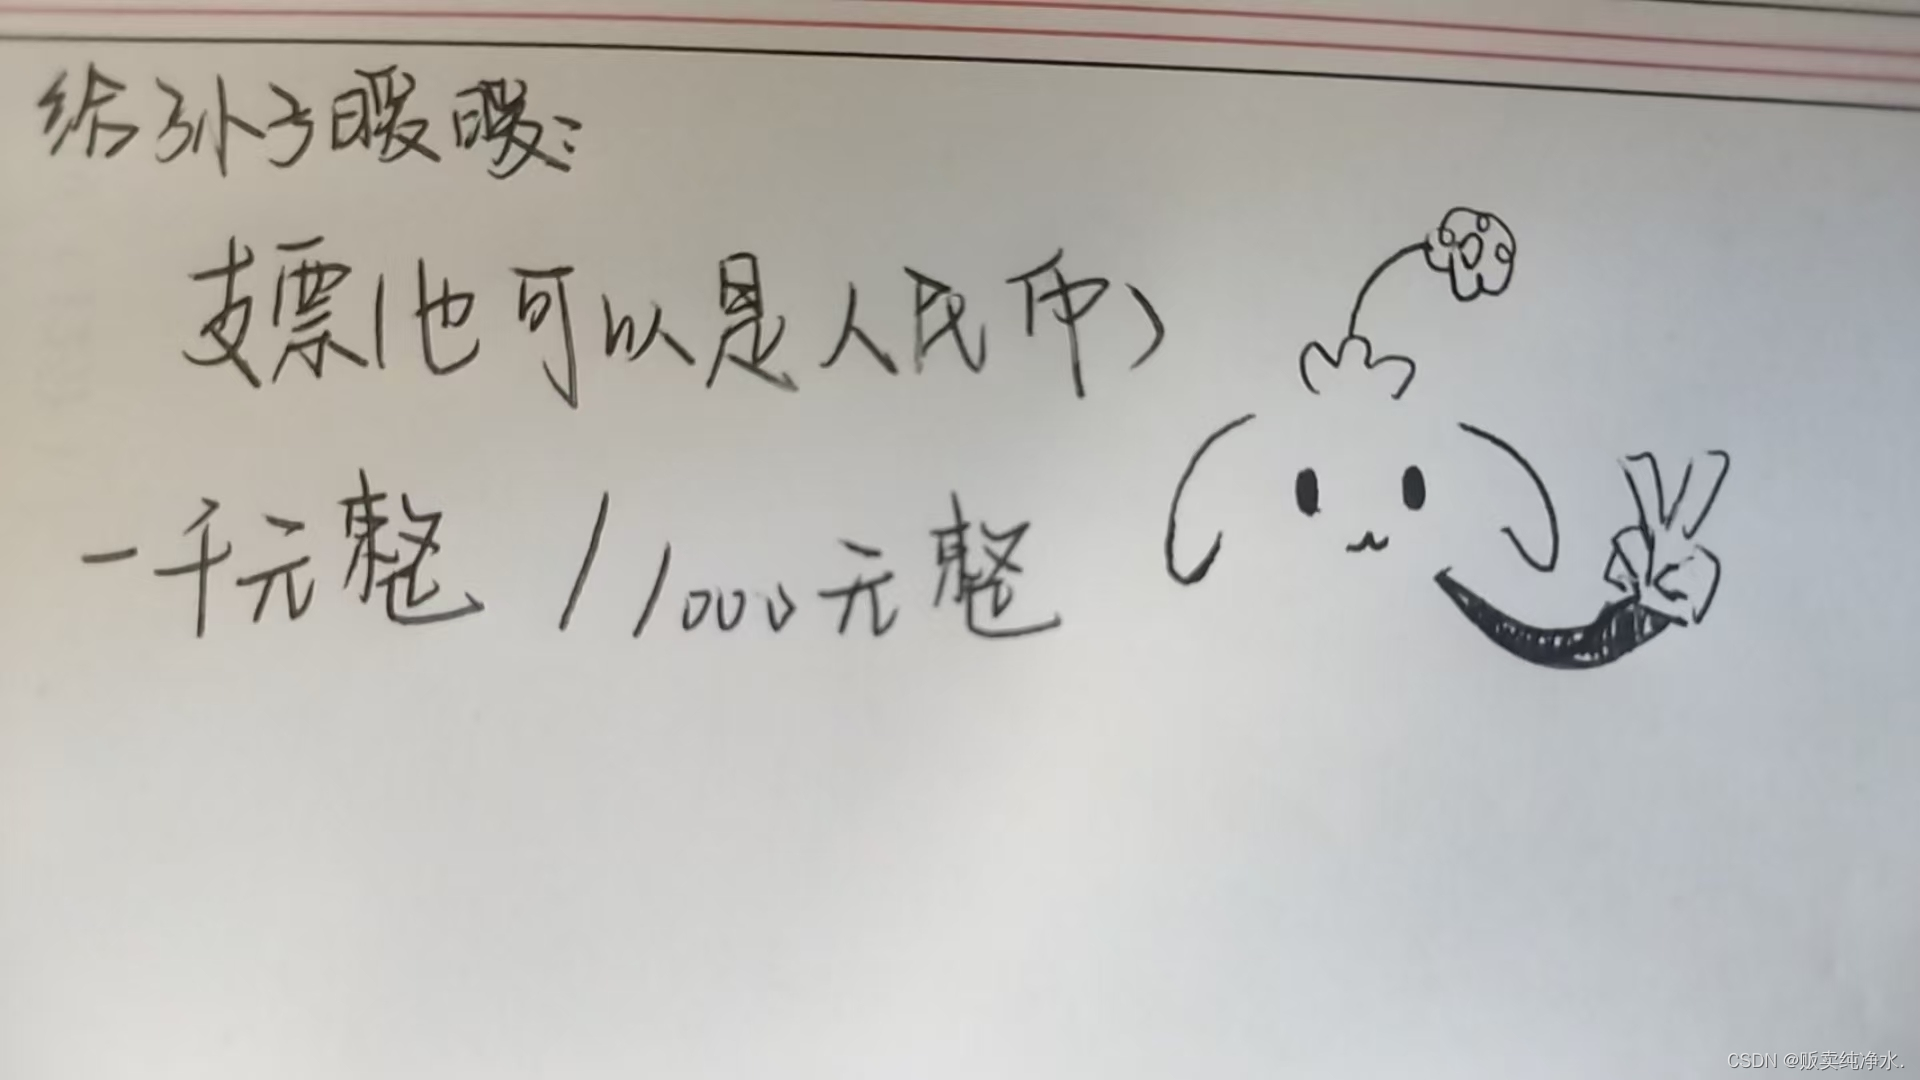 给孙子暖暖：
支票（也可以是人民币）
一千元整 / /1000元整
CSDN @贩卖纯净水.